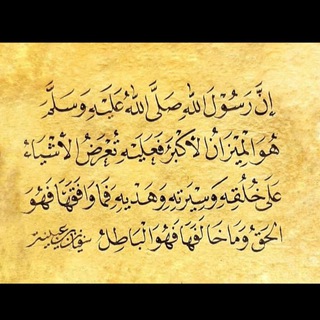 إِنَّ رَسُوْلَ اللهِ صَلَّى اللهُ عَلَيْهِ وَسَلَّمَ
هُوَ الْمِيْزَانُ الْأَكْبَرُ فَعَلَيْهِ تُعْرَضُ الْأَشْيَاءُ
عَلَى خُلُقِهِ وَسِيْرَتِهِ وَهَدْيِهِ فَمَا وَافَقَهَا فَهُوَ
الْحَقُّ وَمَا خَالَفَهَا فَهُوَ الْبَاطِلُ سفيان بن عيينة